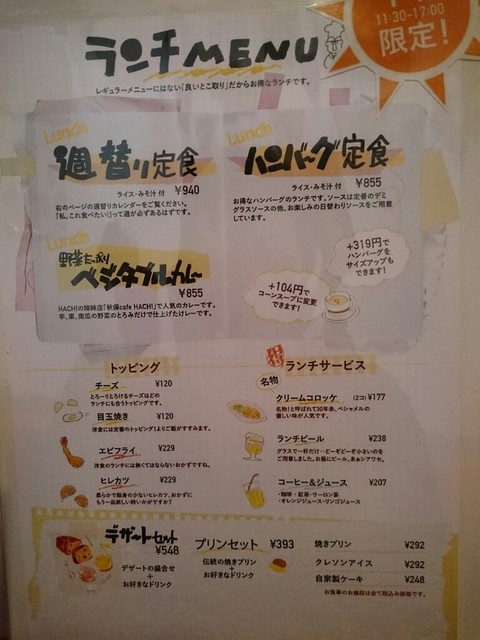 11:30-17:00
限定!
ランチMENU
レギュラーメニューにはない「良いとこ取り」だからお得なランチです。
Lunch
週替り定食
ライス・みそ汁 付 ¥940
右のページの週替りカレンダーをご覧ください。
「私、これ食べたい!」って週が必ずあるはずです。
Lunch
ハンバーグ定食
ライス・みそ汁 付 ¥855
お得なハンバーグのランチです。ソースは定番のデミ
グラスソースの他、お楽しみの日替わりソースをご用意
しています。
+319円で
ハンバーグを
サイズアップも
できます!
+104円で
コーンスープに変更
できます!
Lunch
野菜たっぷり
ベジタブルカレー
¥855
HACHIの姉妹店「秋保cafe HACHI」で人気のカレーです。
芋、栗、南瓜の野菜のとろみだけで仕上げたカレーです。
トッピング
チーズ ¥120
とろーりとろけるチーズはどの
ランチにも合うトッピングです。
目玉焼き ¥120
洋食には定番のトッピング!よりご飯がすすみます。
エビフライ ¥229
洋食のランチには無くてはならないおかずですね。
ヒレカツ ¥229
柔らかで脂身の少ないヒレカツ。おかずに
もう一品欲しい時いかがですか?
ランチサービス
名物
クリームコロッケ (2コ) ¥177
名物!と呼ばれて30年余、ベシャメルの
優しい味が人気です。
ランチビール ¥238
グラスで一杯だけ…どーぞどーぞ小さいのを
ご用意しました。お昼にビール、あぁシアワセ。
コーヒー&ジュース ¥207
・珈琲・紅茶・ウーロン茶
・オレンジジュース・リンゴジュース
デザートセット
¥548
デザートの盛合せ
+
お好きなドリンク
プリンセット ¥393
伝統の焼きプリン
+
お好きなドリンク
焼きプリン ¥292
クレソンアイス ¥292
自家製ケーキ ¥248
お食事のお値段は全て税込み価格です。